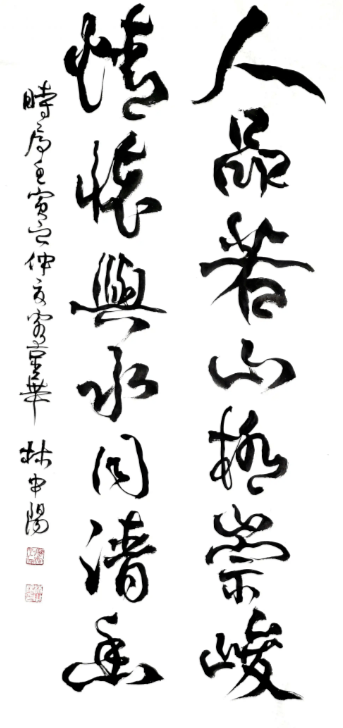 人品若山極崇峻
情懷與水同清幽
時序壬寅之仲夏 京華 林中陽